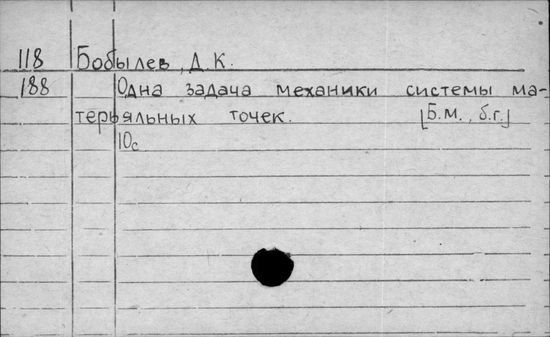 118 Бобылев, Д. К.
188 Одна задача механики системы ма-
терьяльных точек. [Б.м., б.г.]
10с